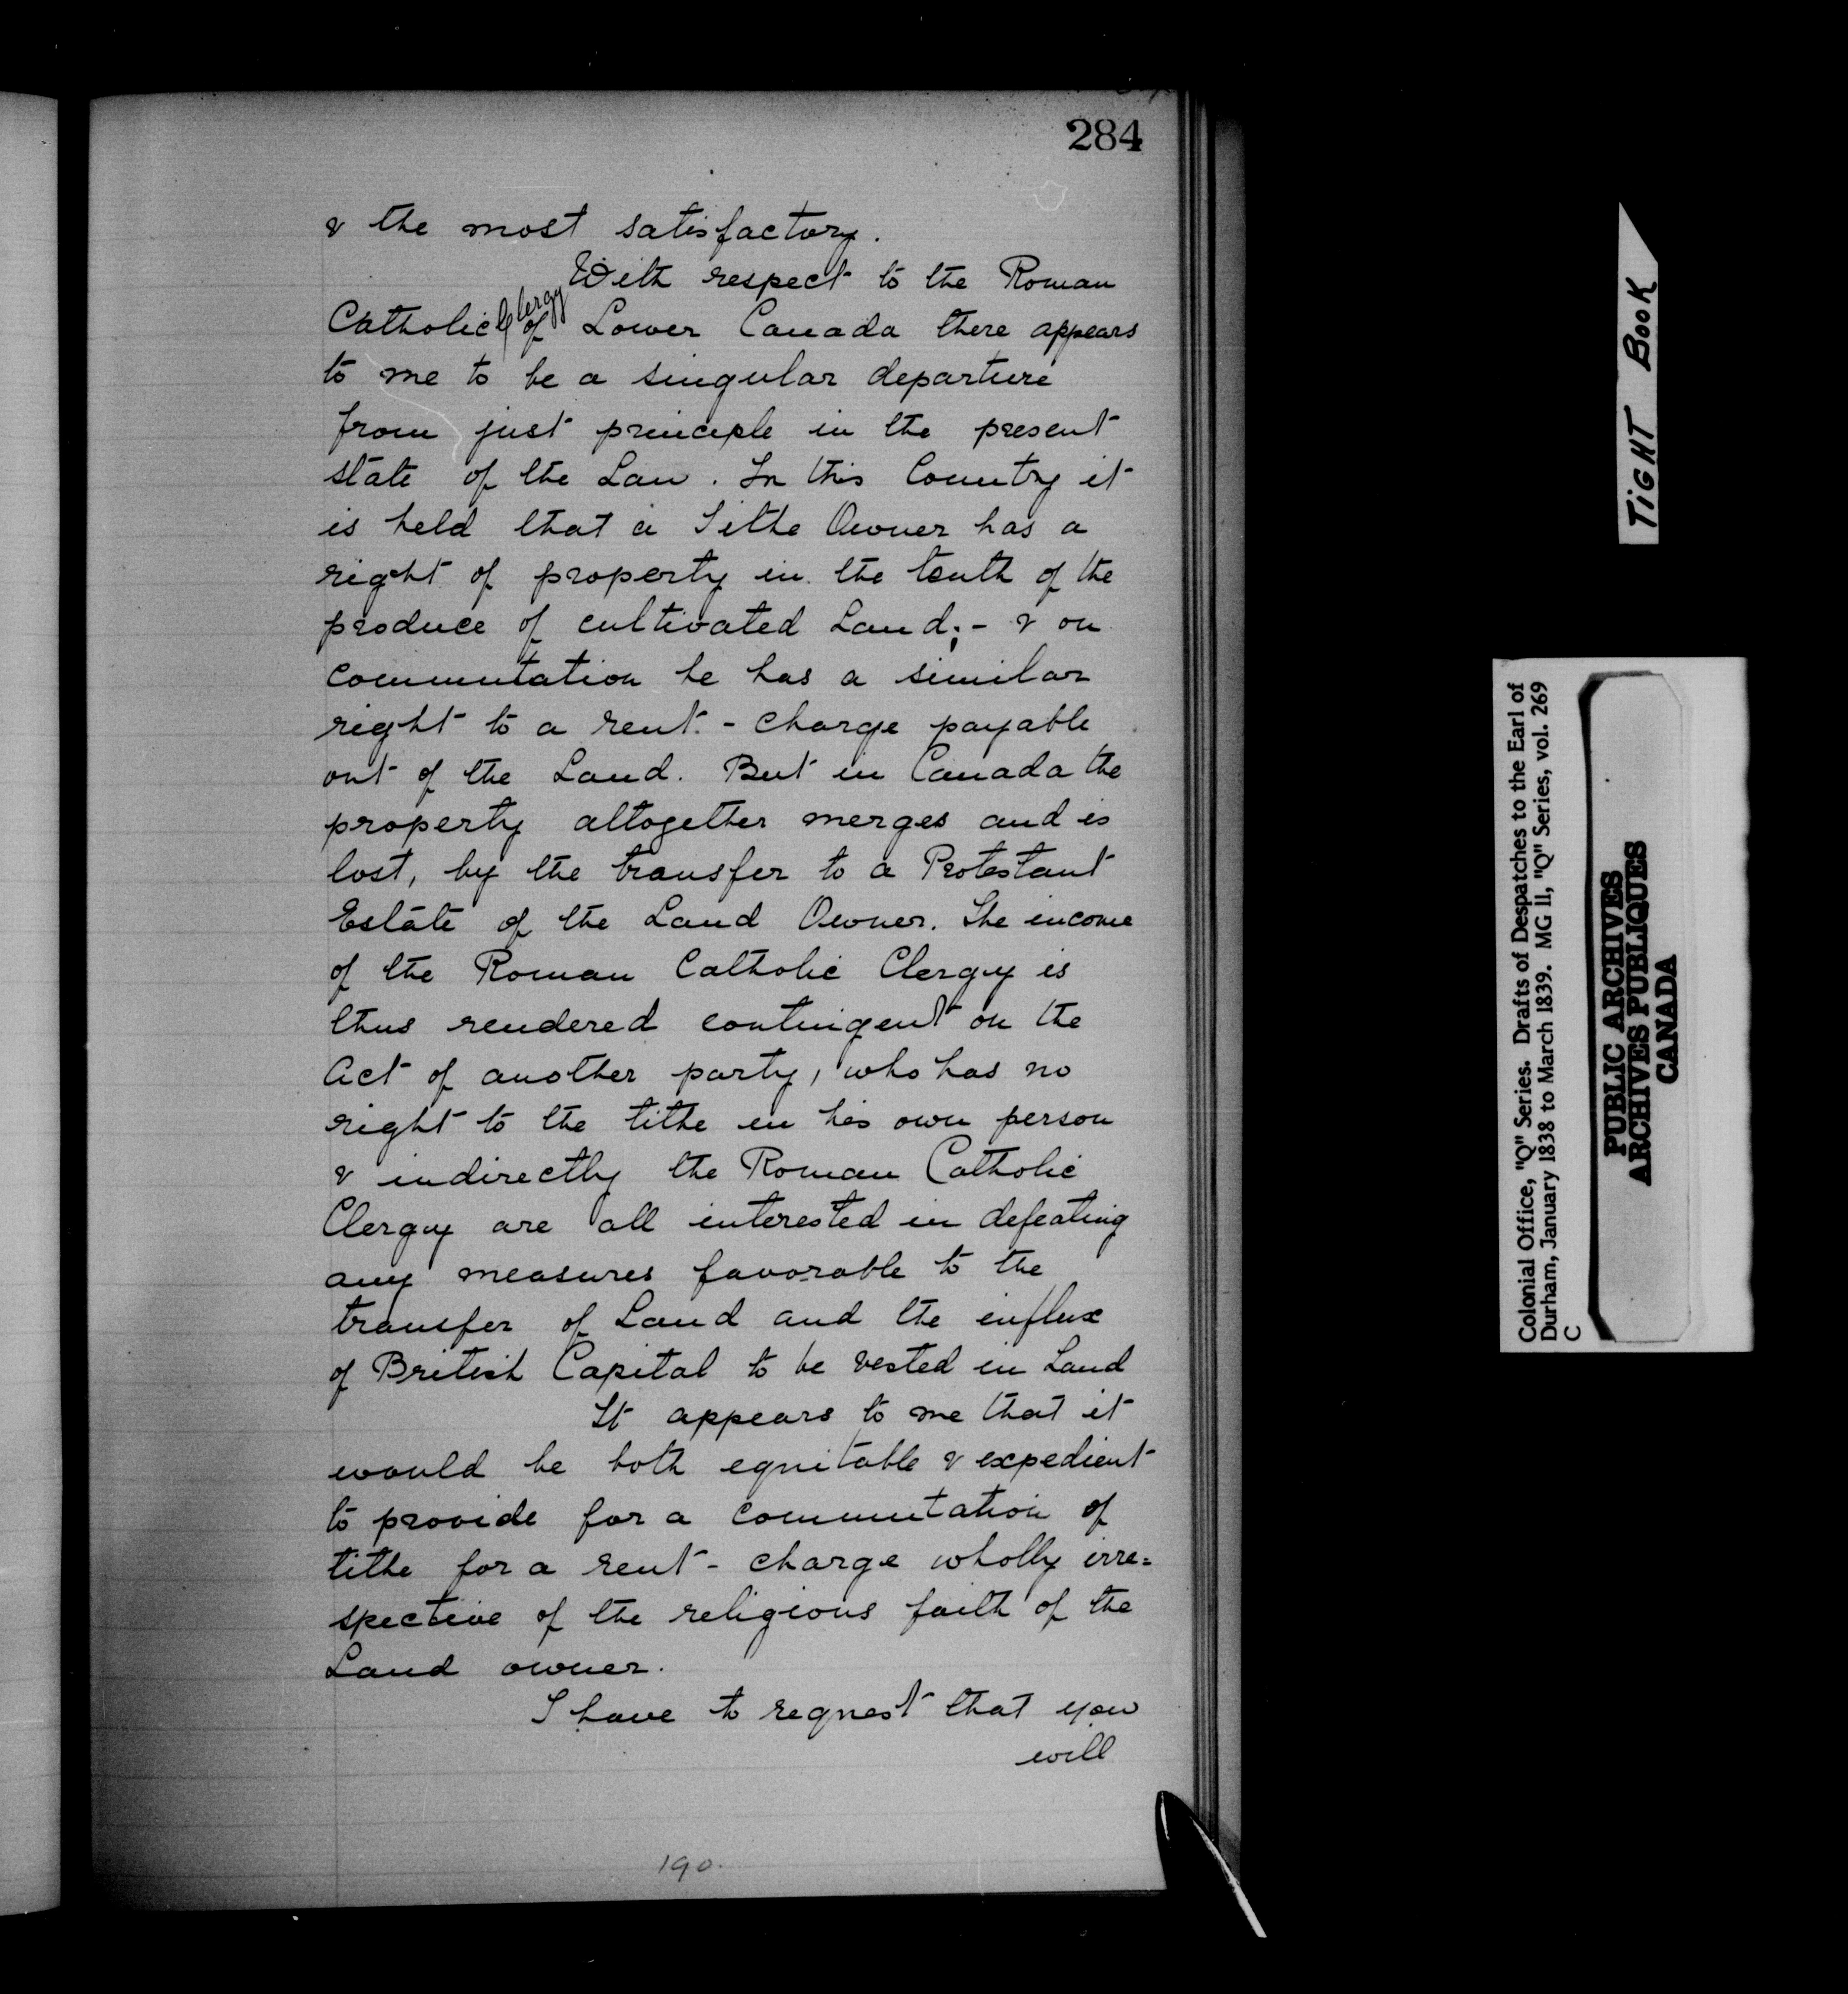 284
& the most satisfactory.
With respect to the Roman
Catholic Clergy of Lower Canada there appears
to me to be a singular departure
from just principle in the present
state of the Law. In this Country it
is held that a Tithe Owner has a
right of property in the tenth of the
produce of cultivated Land; - & on
commutation he has a similar
right to a rent-charge payable
out of the Land. But in Canada the
property altogether merges and is
lost, by the transfer to a Protestant
Estate of the Land Owner. The income
of the Roman Catholic Clergy is
thus rendered contingent on the
Act of another party, who has no
right to the tithe in his own person
& indirectly the Roman Catholic
Clergy are all interested in defeating
any measures favorable to the
transfer of Land and the influx
of British Capital to be vested in Land
It appears to me that it
would be both equitable & expedient
to provide for a commutation of
tithe for a rent-charge wholly irre=
spective of the religious faith of the
Land owner.
I have to request that you
will
190.
TIGHT BOOK
Colonial Office, "Q" Series. Drafts of Despatches to the Earl of
Durham, January 1838 to March 1839. MG 11, "Q" Series, vol. 269
C
PUBLIC ARCHIVES
ARCHIVES PUBLIQUES
CANADA